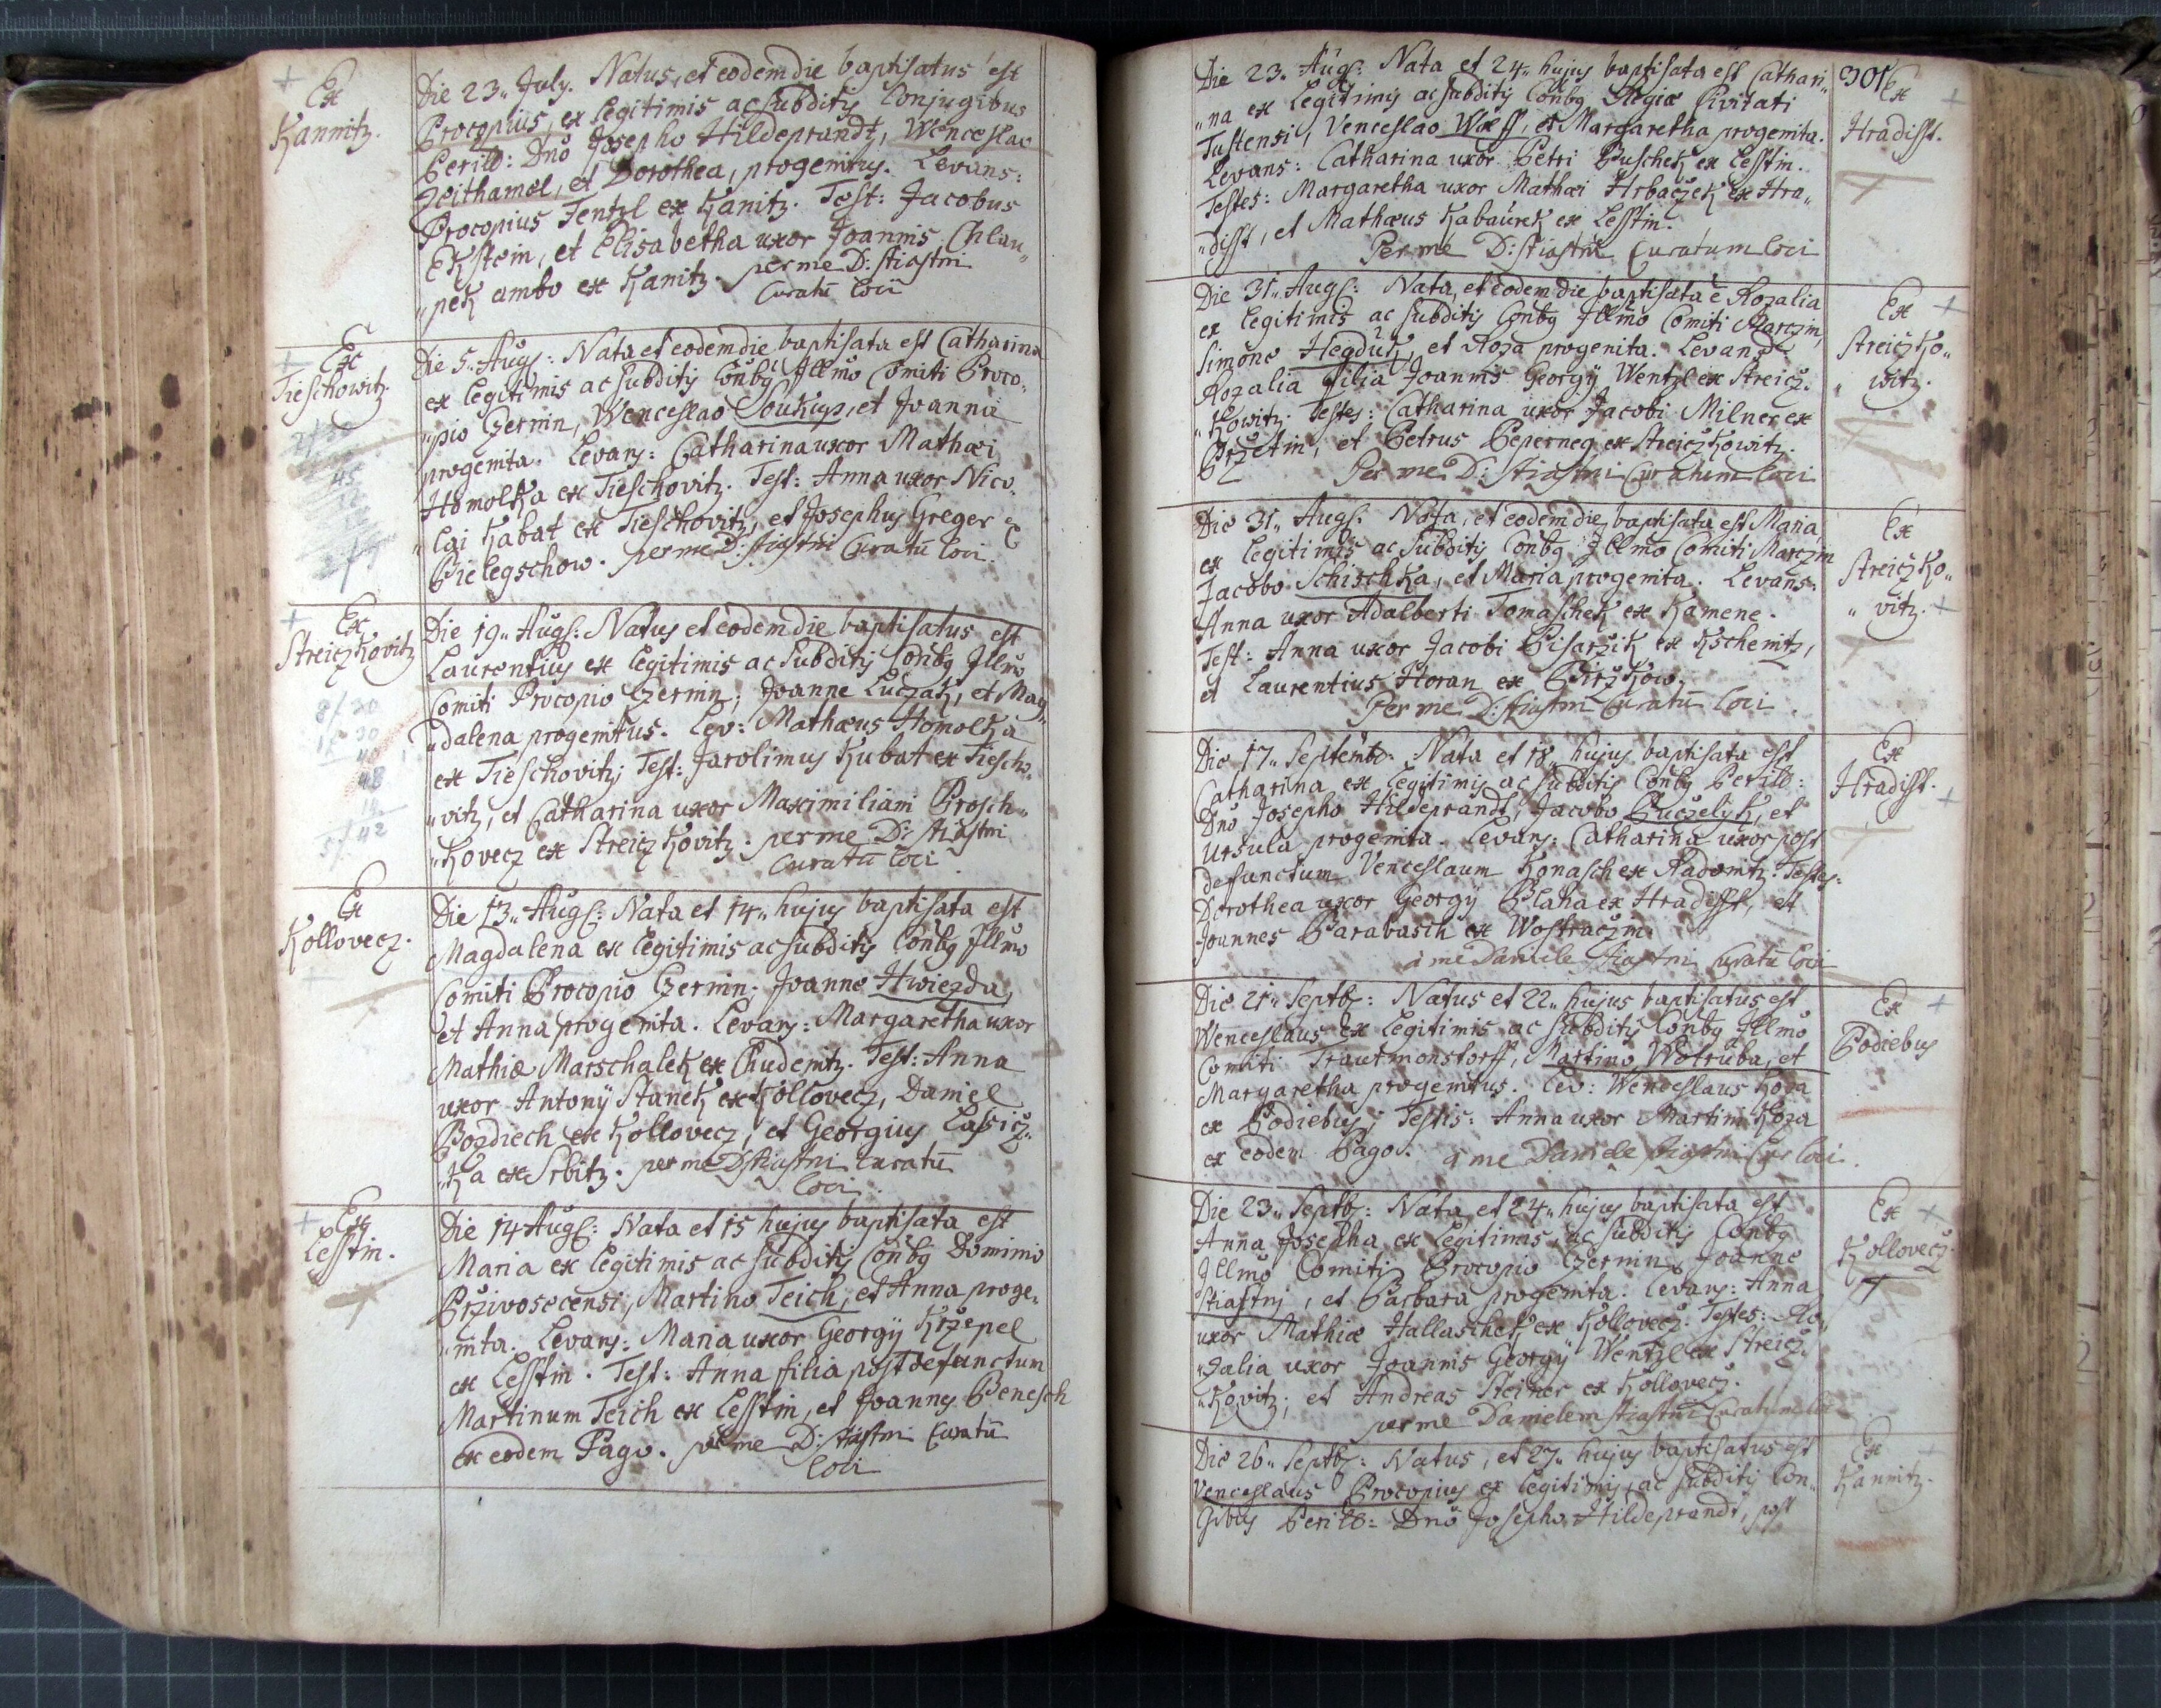 Ex
Kannitz.
Die 23. July. Natus, et eodem die baptisatus est
Procopius, ex legitimis ac subditis Conjugibus
Perill: Dno Josepho Hildeprandt, Wenceslao
Zeithamel, et Dorothea, progenitus. Levans:
Procopius Fentzl ex Kanitz. Test: Jacobus
Ekstein, et Elisabetha uxor Joannis Chlau„
„pek ambo ex Kanitz. per me D: Stiastni
Curatū loci
Ex
Tieschowitz.
Die 5. Augs: Nata et eodem die baptisata est Catharina
ex legitimis ac subditis Conbg Illmo Comiti Proco„
„pio Czernin, Wenceslao Soukup, et Joanna
progenita. Levans: Catharina uxor Mathæi
Homolka ex Tieschovitz. Test: Anna uxor Nico„
„lai Kabat ex Tieschovitz, et Josephus Greger ex
Bielegschow. per me D: Stiastni Curatū loci.
Ex
Streiczkovitz
Die 19„ Augs: Natus et eodem die baptisatus est
Laurentius ex legitimis ac subditis Conbg Illmo
Comiti Procopio Czernin, Joanne Luczak, et Mag„
„dalena progenitus. Lev: Mathæus Homolka
ex Tieschovitz; Test: Jarolimus Kubat ex Tiescho„
„vitz, et Catharina uxor Maximiliani Prosch„
„kovecz ex Streiczkovitz. per me D: Stiastni
Curatū loci
8f 30
1f 30
40
48
14
5f 42
Ex
Kollovecz.
Die 13„ Augs: Nata et 14„ hujus baptisata est
Magdalena ex legitimis ac subditis Conbg Illmo
Comiti Procopio Czernin. Joanne Hwiezda,
et Anna progenita. Levans: Margaretha uxor
Mathiæ Marschalek ex Chudenitz. Test: Anna
uxor Antonÿ Stanek ex Kollovecz, Daniel
Bozdiech ex Kollovecz, et Georgius Lasicz„
„ka ex Srbitz. per me D Stiastni Curatū
loci.
Ex
Lesstin.
Die 14 Augs: Nata et 15 hujus baptisata est
Maria ex legitimis ac subditis Conbg Dominio
Przivosecensi, Martino Teich, et Anna proge„
„nita. Levans: Maria uxor Georgÿ Krzepel
ex Lesstin. Test: Anna filia post defunctum
Martinum Teich ex Lesstin, et Joannes Benesch
ex eodem Pago. per me D: Stiastni Curatū
loci
301
Ex
Hradisst.
Die 23„ Augs: Nata et 24„ hujus baptisata est Cathari„
„na ex legitimis ac subditis Conbg Regiæ Civitati
Tustensi, Venceslao Wolff, et Margaretha progenita.
Levans: Catharina uxor Petri Buschek ex Lesstin.
Testes: Margaretha uxor Mathæi Hrbaczek ex Hra„
„disst, et Mathæus Kabaurek ex Lesstin.
Per me D: Stiastni Curatum loci
Ex
Streiczko„
„witz.
Die 31„ Augs: Nata, et eodem die baptisata ē Rozalia
ex legitimis ac subditis Conbg Illmo Comiti Marczin,
Simone Hegduk, et Roza progenita. Levans
Rozalia filia Joannis Georgÿ Wentzl ex Streicz„
„kowitz. Testes: Catharina uxor Jacobi Milner ex
Przetin, et Petrus Peperneg ex Streiczkowitz.
Per me D: Stiastni Curatum loci
Ex
Streiczko„
„vitz.
Die 31„ Augs: Nata, et eodem die baptisata est Maria,
ex legitimis ac subditis Conbg Illmo Comiti Marczin
Jacobo Schischka, et Maria progenita. Levans:
Anna uxor Adalberti Tomaschek ex Kamene.
Test: Anna uxor Jacobi Pisarzik ex Kschenitz,
et Laurentius Horan ex Pirzkow.
Per me D: Stiastni Curatū loci.
Ex
Hradisst.
Die 17„ Septemb: Nata et 18„ hujus baptisata est
Catharina ex legitimis ac subditis Conbg Perill:
Dno Josepho Hildeprandt, Jacobo Puczelik, et
Ursula progenita. Levans: Catharina uxor post
defunctum Venceslaum Konasch ex Radonitz. Testes:
Dorothea uxor Georgÿ Blaha ex Hradisst, et
Joannes Barabasch ex Wostraczin.
a me Daniele Stiastni Curatū loci
Ex
Podiebus
Die 21„ Septb: Natus et 22„ hujus baptisatus est
Wenceslaus ex legitimis ac subditis Conbg Illmo
Comiti Trautmonstorff, Martino Wotruba, et
Margaretha progenitus. Lev: Wenceslaus Koza
ex Podiebus; Testis: Anna uxor Martini Koza
ex eodem Pago. a me Daniele Stiastni Cur loci.
Ex
Kollovecz.
Die 23„ Septb: Nata et 24„ hujus baptisata est
Anna Josepha ex legitimis, ac subditis Conbg
Illmo Comiti Procopio Czernin, Joanne
Stiastnj, et Barbara progenita. Levans: Anna
uxor Mathiæ Hallaschek ex Kollovecz. Testes: Ro„
„zalia uxor Joannis Georgÿ Wentzl ex Streicz„
„kovitz; et Andreas Steiner ex Kollovecz.
per me Danielem Stiastni Curatum loci
Ex
Kannitz.
Die 26„ Septb: Natus, et 27„ hujus baptisatus est
Venceslaus Procopius ex legitimis, ac subditis Con„
Jibus Perill: Dno Josepho Hildeprandt, post